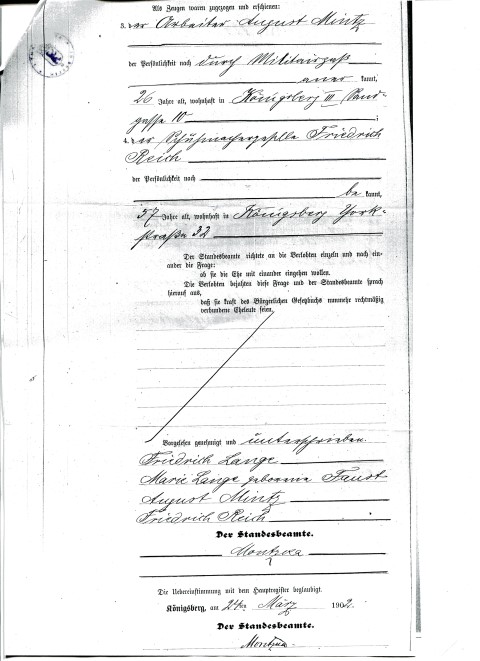 Als Zeugen waren zugezogen und erschienen:
3. der Arbeiter August Mintz
der Persönlichkeit nach durch Militairpaß
aner kannt,
26 Jahre alt, wohnhaft in Königsberg III Sand-
gasse 10 ;
4. der Schuhmachergeselle Friedrich
Reich
der Persönlichkeit nach
be kannt,
57 Jahre alt, wohnhaft in Königsberg York-
straße 32
Der Standesbeamte richtete an die Verlobten einzeln und nach ein-
ander die Frage:
ob sie die Ehe mit einander eingehen wollen.
Die Verlobten bejahten diese Frage und der Standesbeamte sprach
hierauf aus,
daß sie kraft des Bürgerlichen Gesetzbuchs nunmehr rechtmäßig
verbundene Eheleute seien.
Vorgelesen genehmigt und unterschrieben.
Friedrich Lange
Marie Lange geborene Faust
August Mintz
Friedrich Reich
Der Standesbeamte.
Die Uebereinstimmung mit dem Hauptregister beglaubigt.
Königsberg, am März 1902.
Der Standesbeamte.